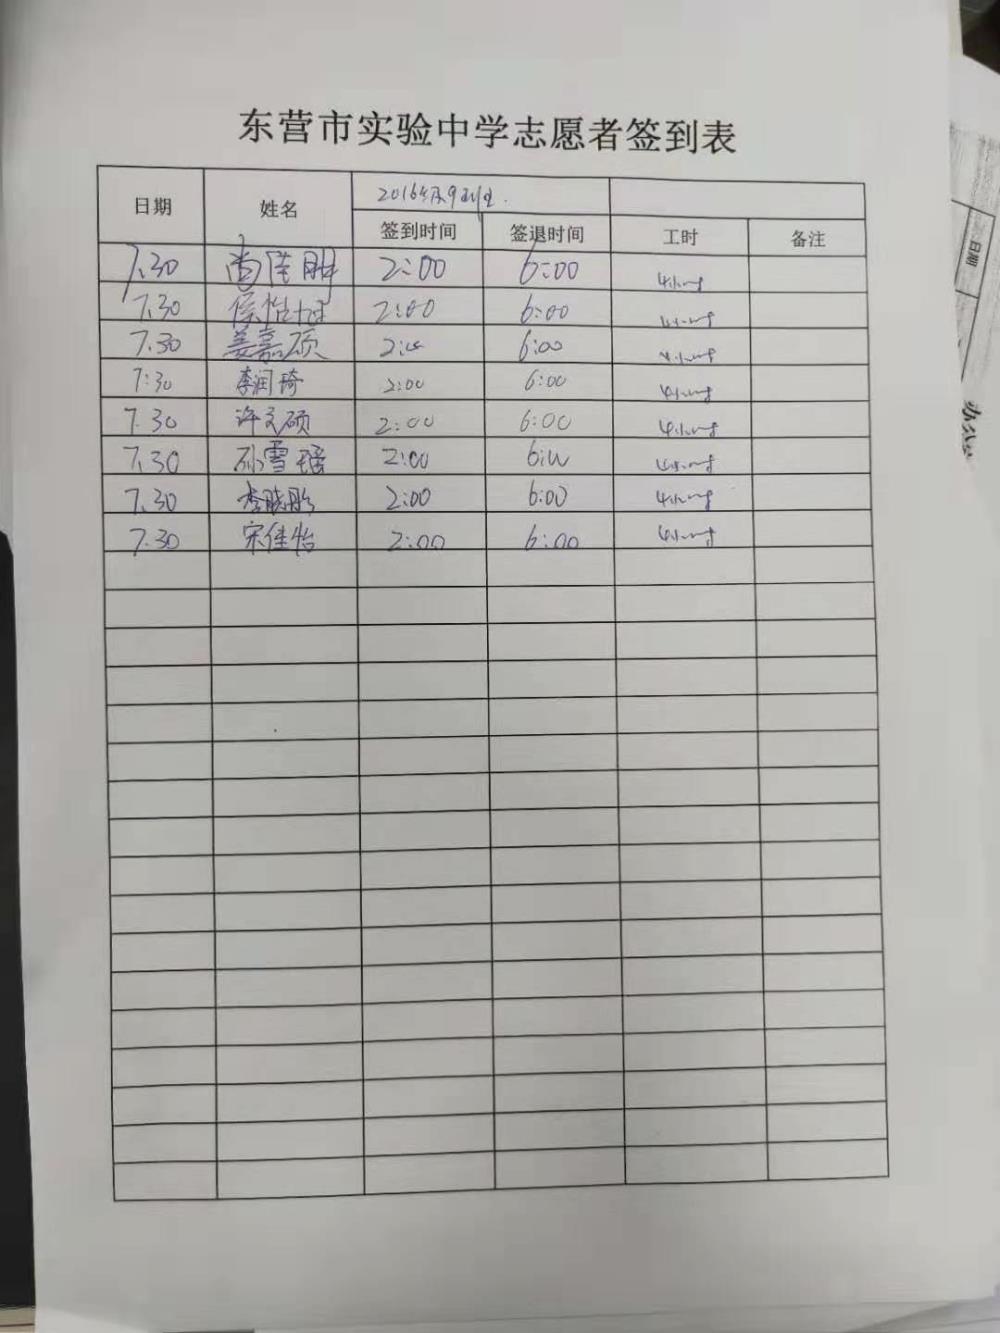 东营市实验中学志愿者签到表
日期 姓名 2016级9班
签到时间 签退时间 工时 备注
7.30 2:00 6:00 4小时
7.30 2:00 6:00 4小时
7.30 姜嘉硕 2:00 6:00 4小时
7:30 李润琦 2:00 6:00 4小时
7.30 许文硕 2:00 6:00 4小时
7.30 孙雪瑶 2:00 6:00 4小时
7.30 李晓彤 2:00 6:00 4小时
7.30 宋佳怡 2:00 6:00 4小时
日期
办公